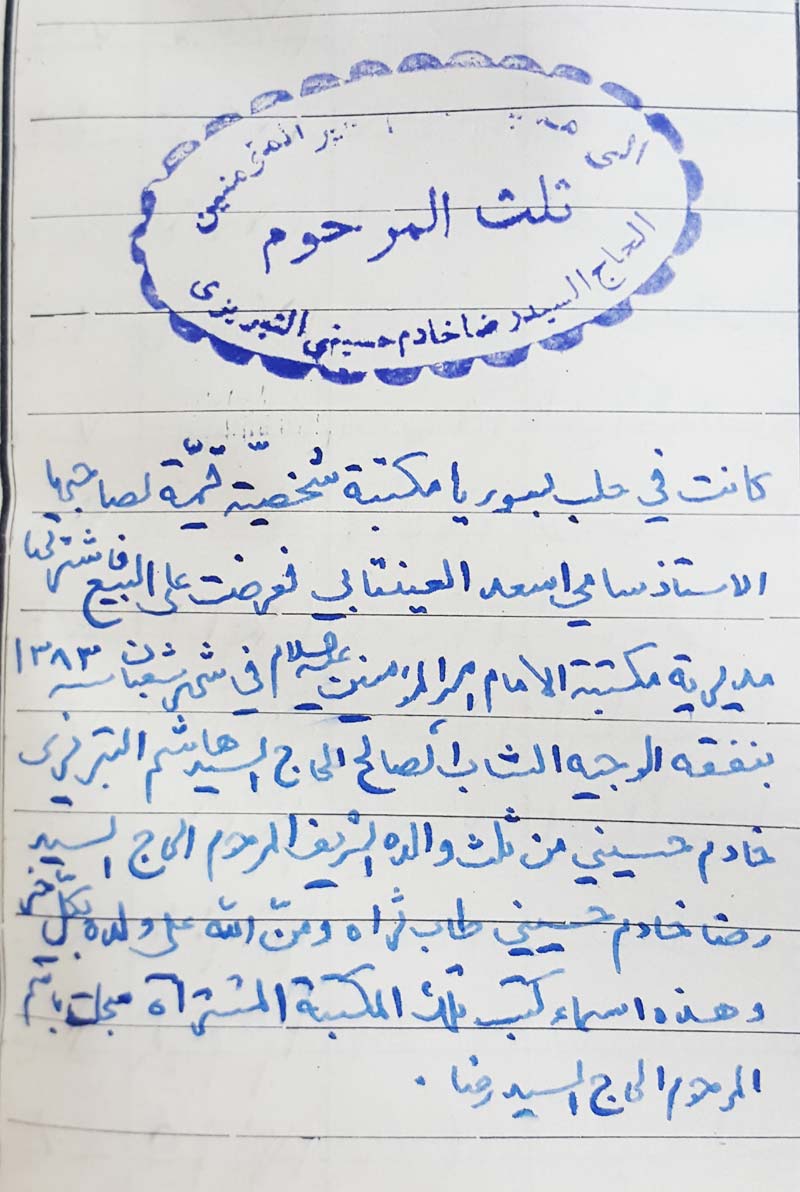 الى
المؤمنين
ثلث المرحوم
الحاج السيد رضا خادم حسيني التبريزى
كانت في حلب بسوريا مكتبة شخصيّة قيّمة لصاحبها
الاستاذ سامي اسعد العينتابي فعرضت على البيع فاشترتها
مديرية مكتبة الامام امير المؤمنين عليه السلام في شهر شعبان سنه ١٣٨٣
بنفقه الوجيه الشاب الصالح الحاج السيد هاشم التبريزى
خادم حسيني من ثلث والده الشريف المرحوم الحاج السيد
رضا خادم حسيني طاب ثراه ومنّ الله على ولده بكل خير
وهذه اسماء كتب تلك المكتبة المشتراة سجلت باسم
المرحوم الحاج السيد رضا .